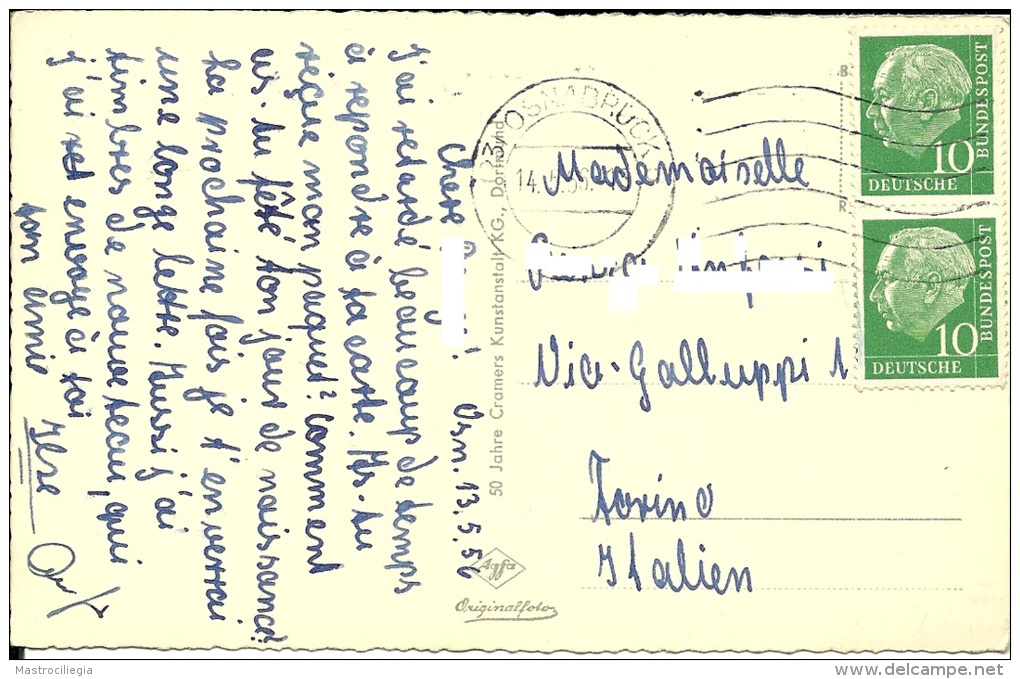 Osn. 13.5.56
Chere
J'ai retardé beaucoup de temps
à repondre à ta carte. As-tu
reçue mon paquet? Comment
as-tu fêté ton jour de naissance?
La prochaine fois je t'enverrai
une longe lettre. Aussi j'ai
timbres de nouveaux, qui
j'ai envoyé à toi
ton amie Ilse
50 Jahre Cramers Kunstanstalt KG, Dortmund
Agfa
Originalfoto
OSNABRÜCK
Mademoiselle
Via-Galluppi 1
Torino
Italien
10
DEUTSCHE
BUNDESPOST
10
DEUTSCHE
BUNDESPOST
Mastrociliegia
www.delcampe.net